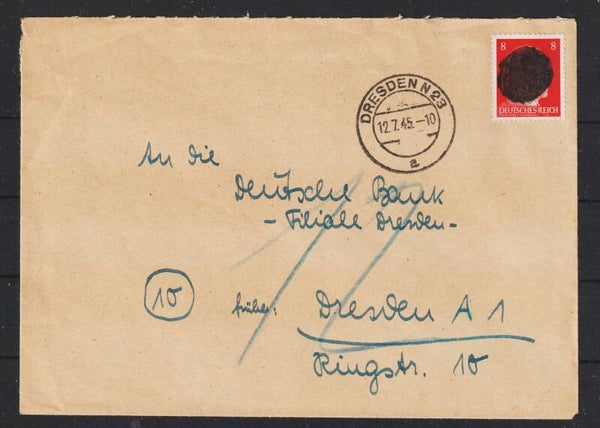 8 8
DEUTSCHES REICH
DRESDEN N 23
12.7.45.-10
a
An die
Deutsche Bank
- Filiale Dresden -
10
früher: Dresden A 1
Ringstr. 10